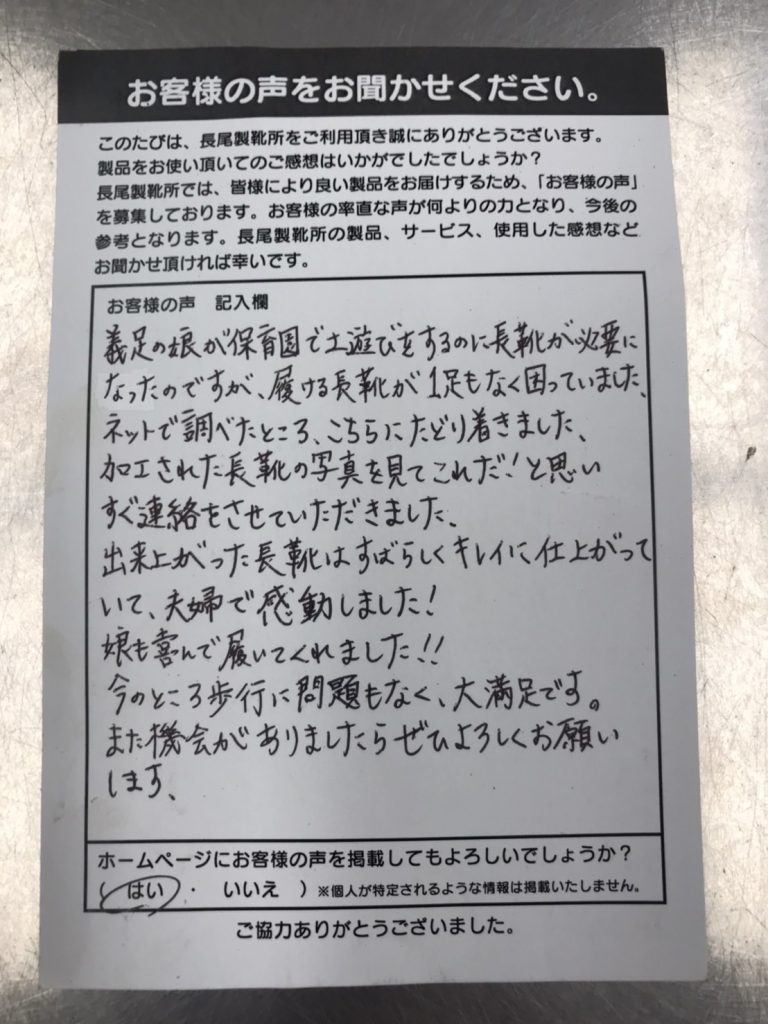 お客様の声をお聞かせください。
このたびは、長尾製靴所をご利用頂き誠にありがとうございます。
製品をお使い頂いてのご感想はいかがでしたでしょうか？
長尾製靴所では、皆様により良い製品をお届けするため、「お客様の声」
を募集しております。お客様の率直な声が何よりの力となり、今後の
参考となります。長尾製靴所の製品、サービス、使用した感想など
お聞かせ頂ければ幸いです。
お客様の声 記入欄
義足の娘が保育園で土遊びをするのに長靴が必要に
なったのですが、履ける長靴が1足もなく困っていました、
ネットで調べたところ、こちらにたどり着きました、
加工された長靴の写真を見てこれだ！と思い
すぐ連絡をさせていただきました、
出来上がった長靴はすばらしくキレイに仕上がって
いて、夫婦で感動しました！
娘も喜んで履いてくれました！！
今のところ歩行に問題もなく、大満足です。
また機会がありましたらぜひよろしくお願い
します、
ホームページにお客様の声を掲載してもよろしいでしょうか？
（ はい ・ いいえ ）※個人が特定されるような情報は掲載いたしません。
ご協力ありがとうございました。